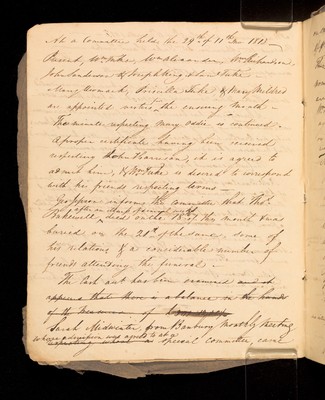 At a Committee held the 29th of 11th Mo 1813—
Present, Wm Tuke, Wm Alexander, Wm Richardson,
John Sanderson & Joseph King & Saml Tuke
Mary Tuke & Mary Mildred
are appointed visitors the ensuing month—
The minute respecting Mary is continued.
A proper certificate having been received
respecting John Harrison, it is agreed to
admit him, & Wm Tuke is desired to correspond
with his friends respecting terms—
G Jepson informs the Committee that Thos
Bakewell, died on the of this month & was
buried on the 20th of the same, some of
his relations & a considerable number of
friends attending the funeral.—
The Cash acct has been examined and it
appears that there is a balance in the hands
of the Treasurer of
Sarah Midwinter, from Banbury Monthly Meeting
whose admission was agreed to at a
special committee, came